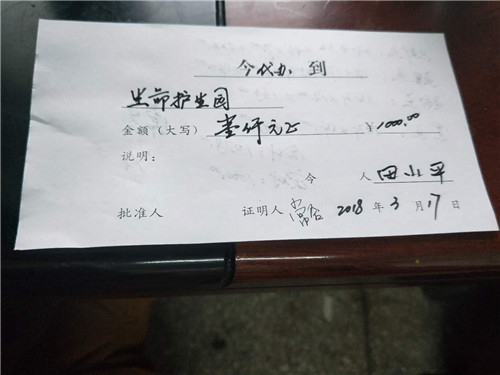 今代办 到
生命护生园
金额（大写） 壹仟元正 ￥1000.00
说明：
今 人 田小平
批准人 证明人 2018 年 3 月 17 日